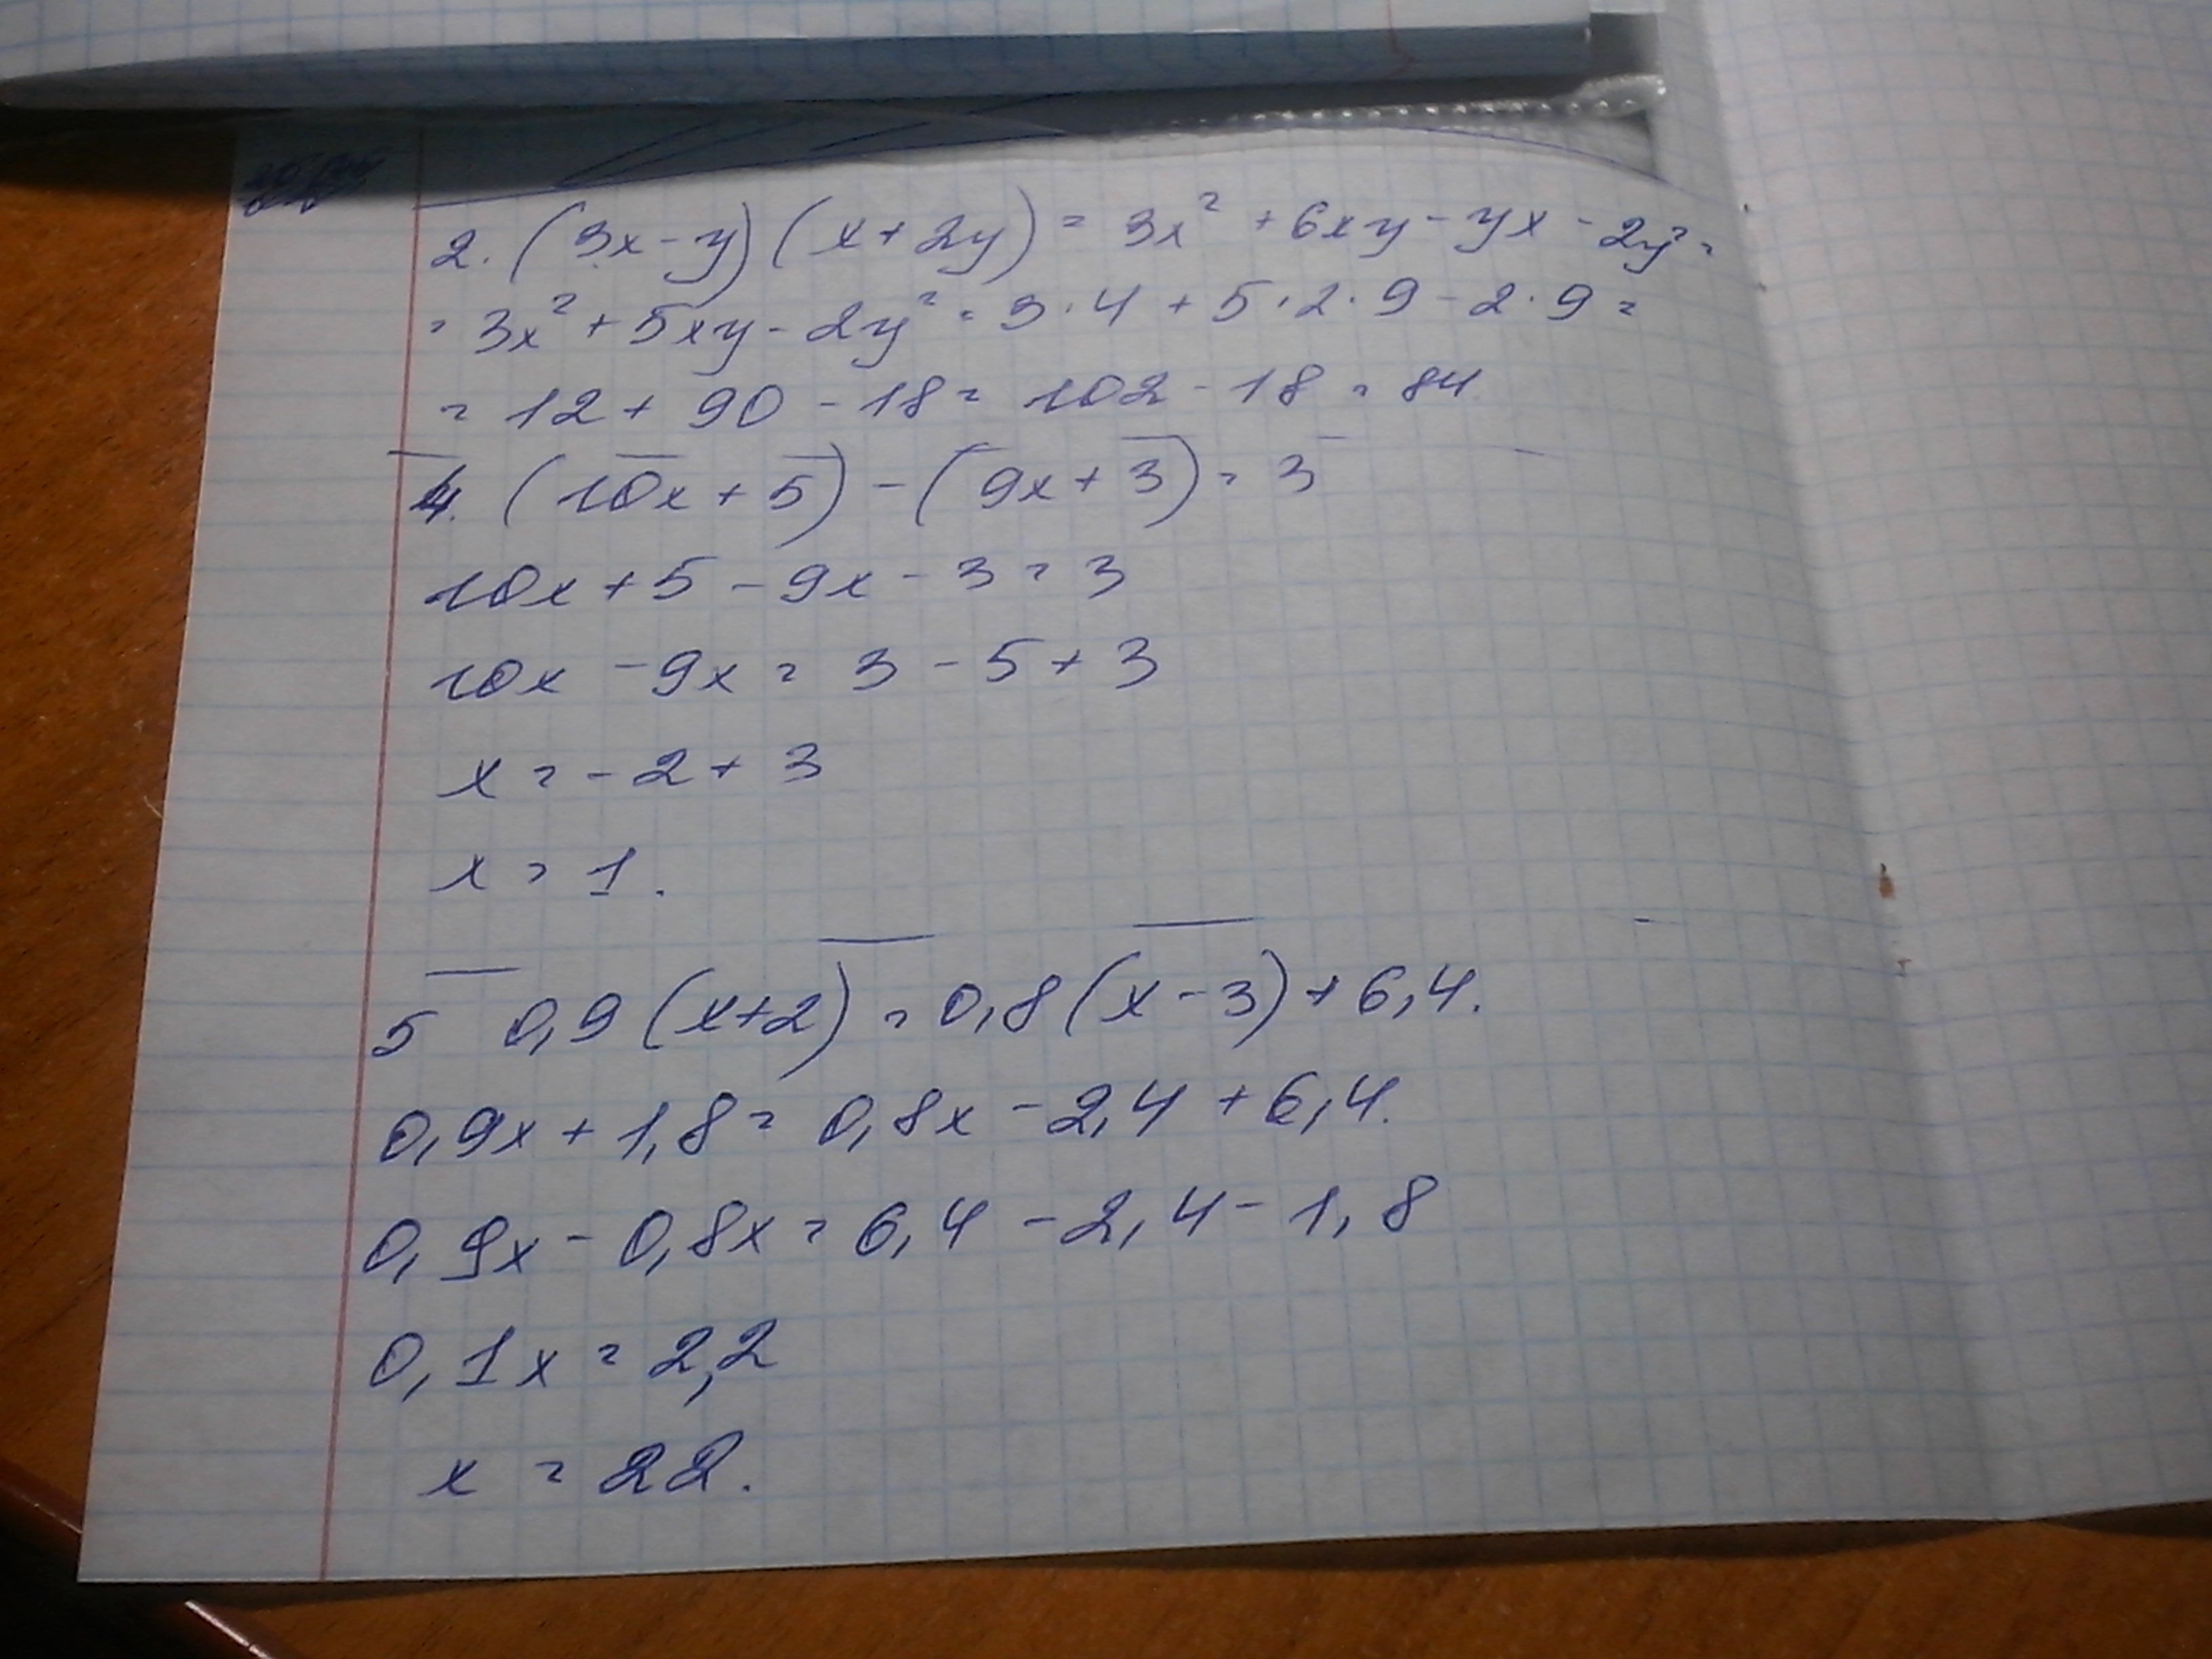 2. (3x-y)(x+2y) = 3x² + 6xy - yx - 2y² =
= 3x² + 5xy - 2y² = 3·4 + 5·2·9 - 2·9 =
= 12 + 90 - 18 = 102 - 18 = 84.
4. (10x+5) - (9x+3) = 3
10x + 5 - 9x - 3 = 3
10x - 9x = 3 - 5 + 3
x = -2 + 3
x = 1.
5 0,9(x+2) = 0,8(x-3) + 6,4.
0,9x + 1,8 = 0,8x - 2,4 + 6,4.
0,9x - 0,8x = 6,4 - 2,4 - 1,8
0,1x = 2,2
x = 22.